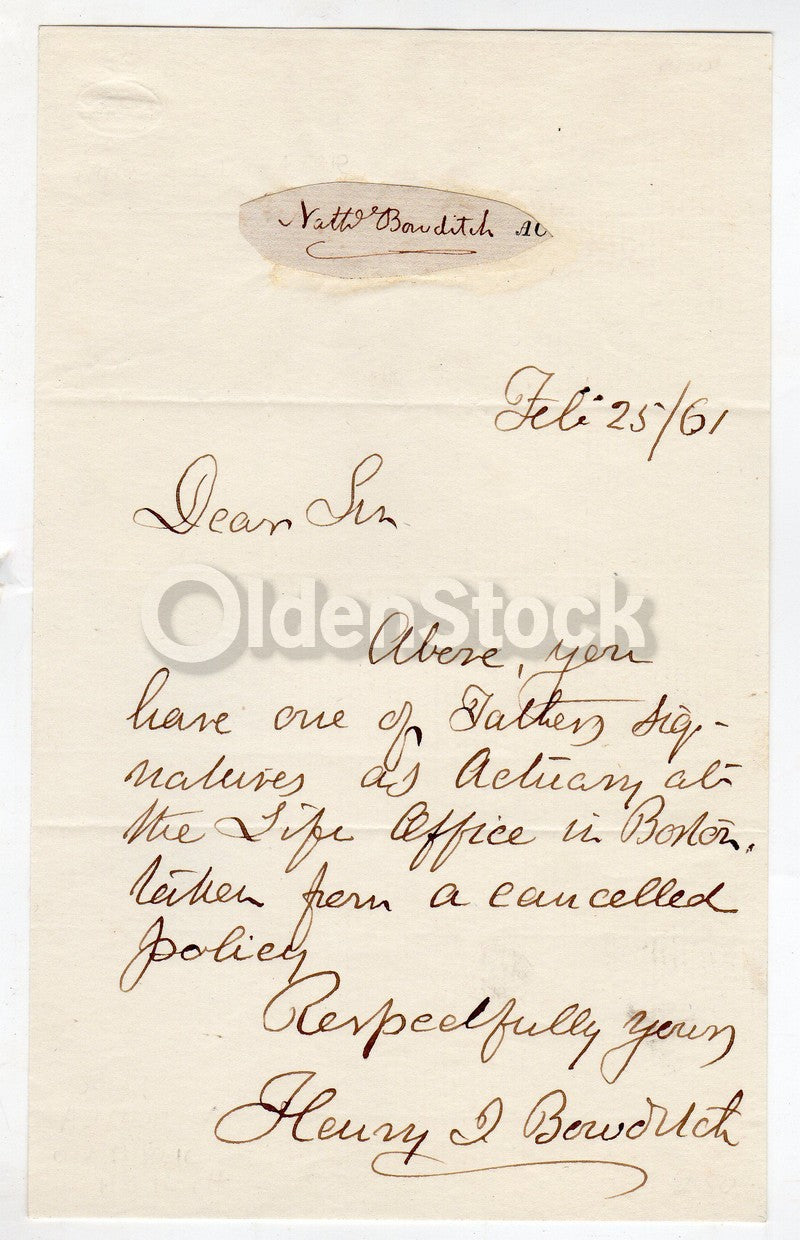 Nathl Bowditch AC
Feb 25/61
Dear Sir
OldenStock
Above, you
have one of Fathers sig-
natures as Actuary at
the Life Office in Boston,
taken from a cancelled
policy
Respectfully yours
Henry I Bowditch